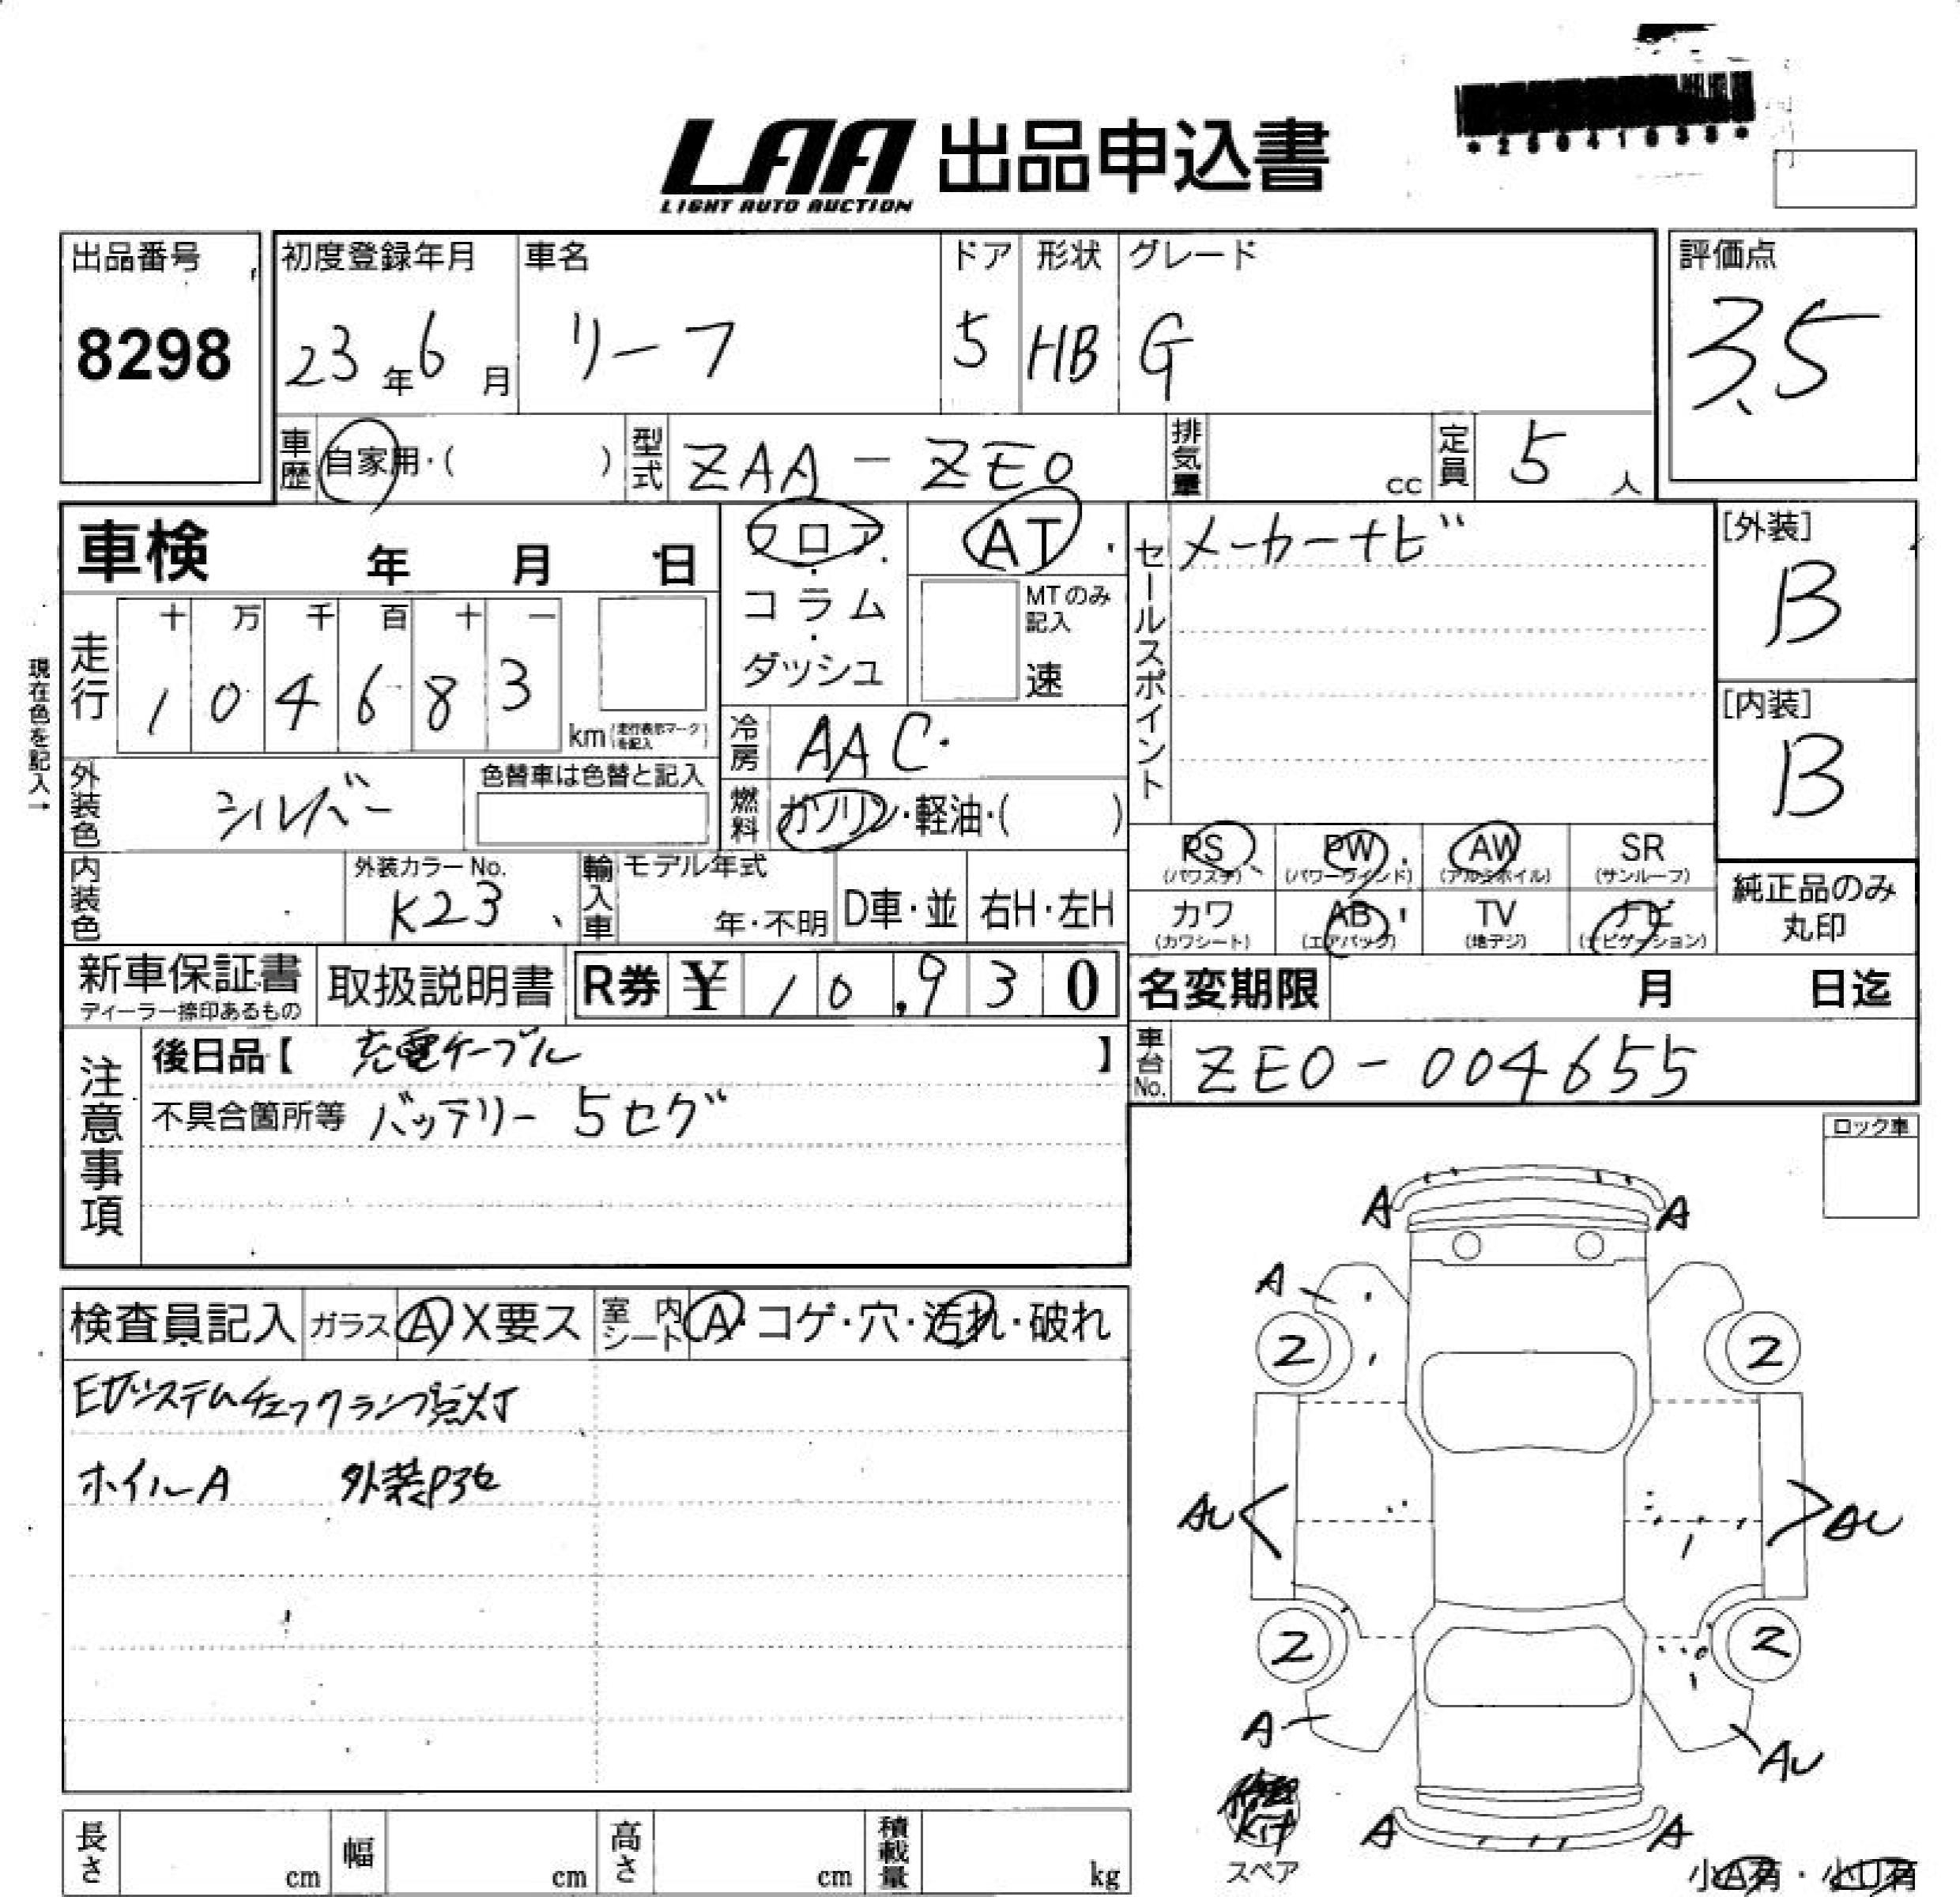 LAA 出品申込書
LIGHT AUTO AUCTION
出品番号
8298
初度登録年月
23年6月
車名
リーフ
ドア
5
形状
HB
グレード
G
評価点
3.5
車歴 自家用・( )
型式 ZAA-ZE0
排気量 cc
定員 5人
車検 年 月 日
フロア・コラム・ダッシュ
AT
MTのみ記入
速
セールスポイント
メーカーナビ
[外装]
B
[内装]
B
現在色を記入→
走行
十 万 千 百 十 一
1 0 4 6 8 3
km (走行表示マークを記入)
冷房 AAC
燃料 ガソリン・軽油・( )
外装色 シルバー
色替車は色替と記入
内装色
外装カラーNo.
K23
輸入車
モデル年式
年・不明
D車・並
右H・左H
PS (パワステ)
PW (パワーウインド)
AW (アルミホイル)
SR (サンルーフ)
カワ (カワシート)
AB (エアバック)
TV (地デジ)
ナビ (ナビゲーション)
純正品のみ丸印
新車保証書
ディーラー捺印あるもの
取扱説明書
R券 ¥ 10,930
名変期限 月 日迄
車台No. ZE0-004655
注意事項
後日品【 充電ケーブル 】
不具合箇所等 バッテリー 5セグ
ロック車
検査員記入
ガラス A X要ス
室内シート A・コゲ・穴・汚れ・破れ
EVシステムチェックランプ点灯
ホイルA
A A
A
2 2
AU AU
2 2
A AU
A A
スペア
小A有・小U有
長さ cm
幅 cm
高さ cm
積載量 kg